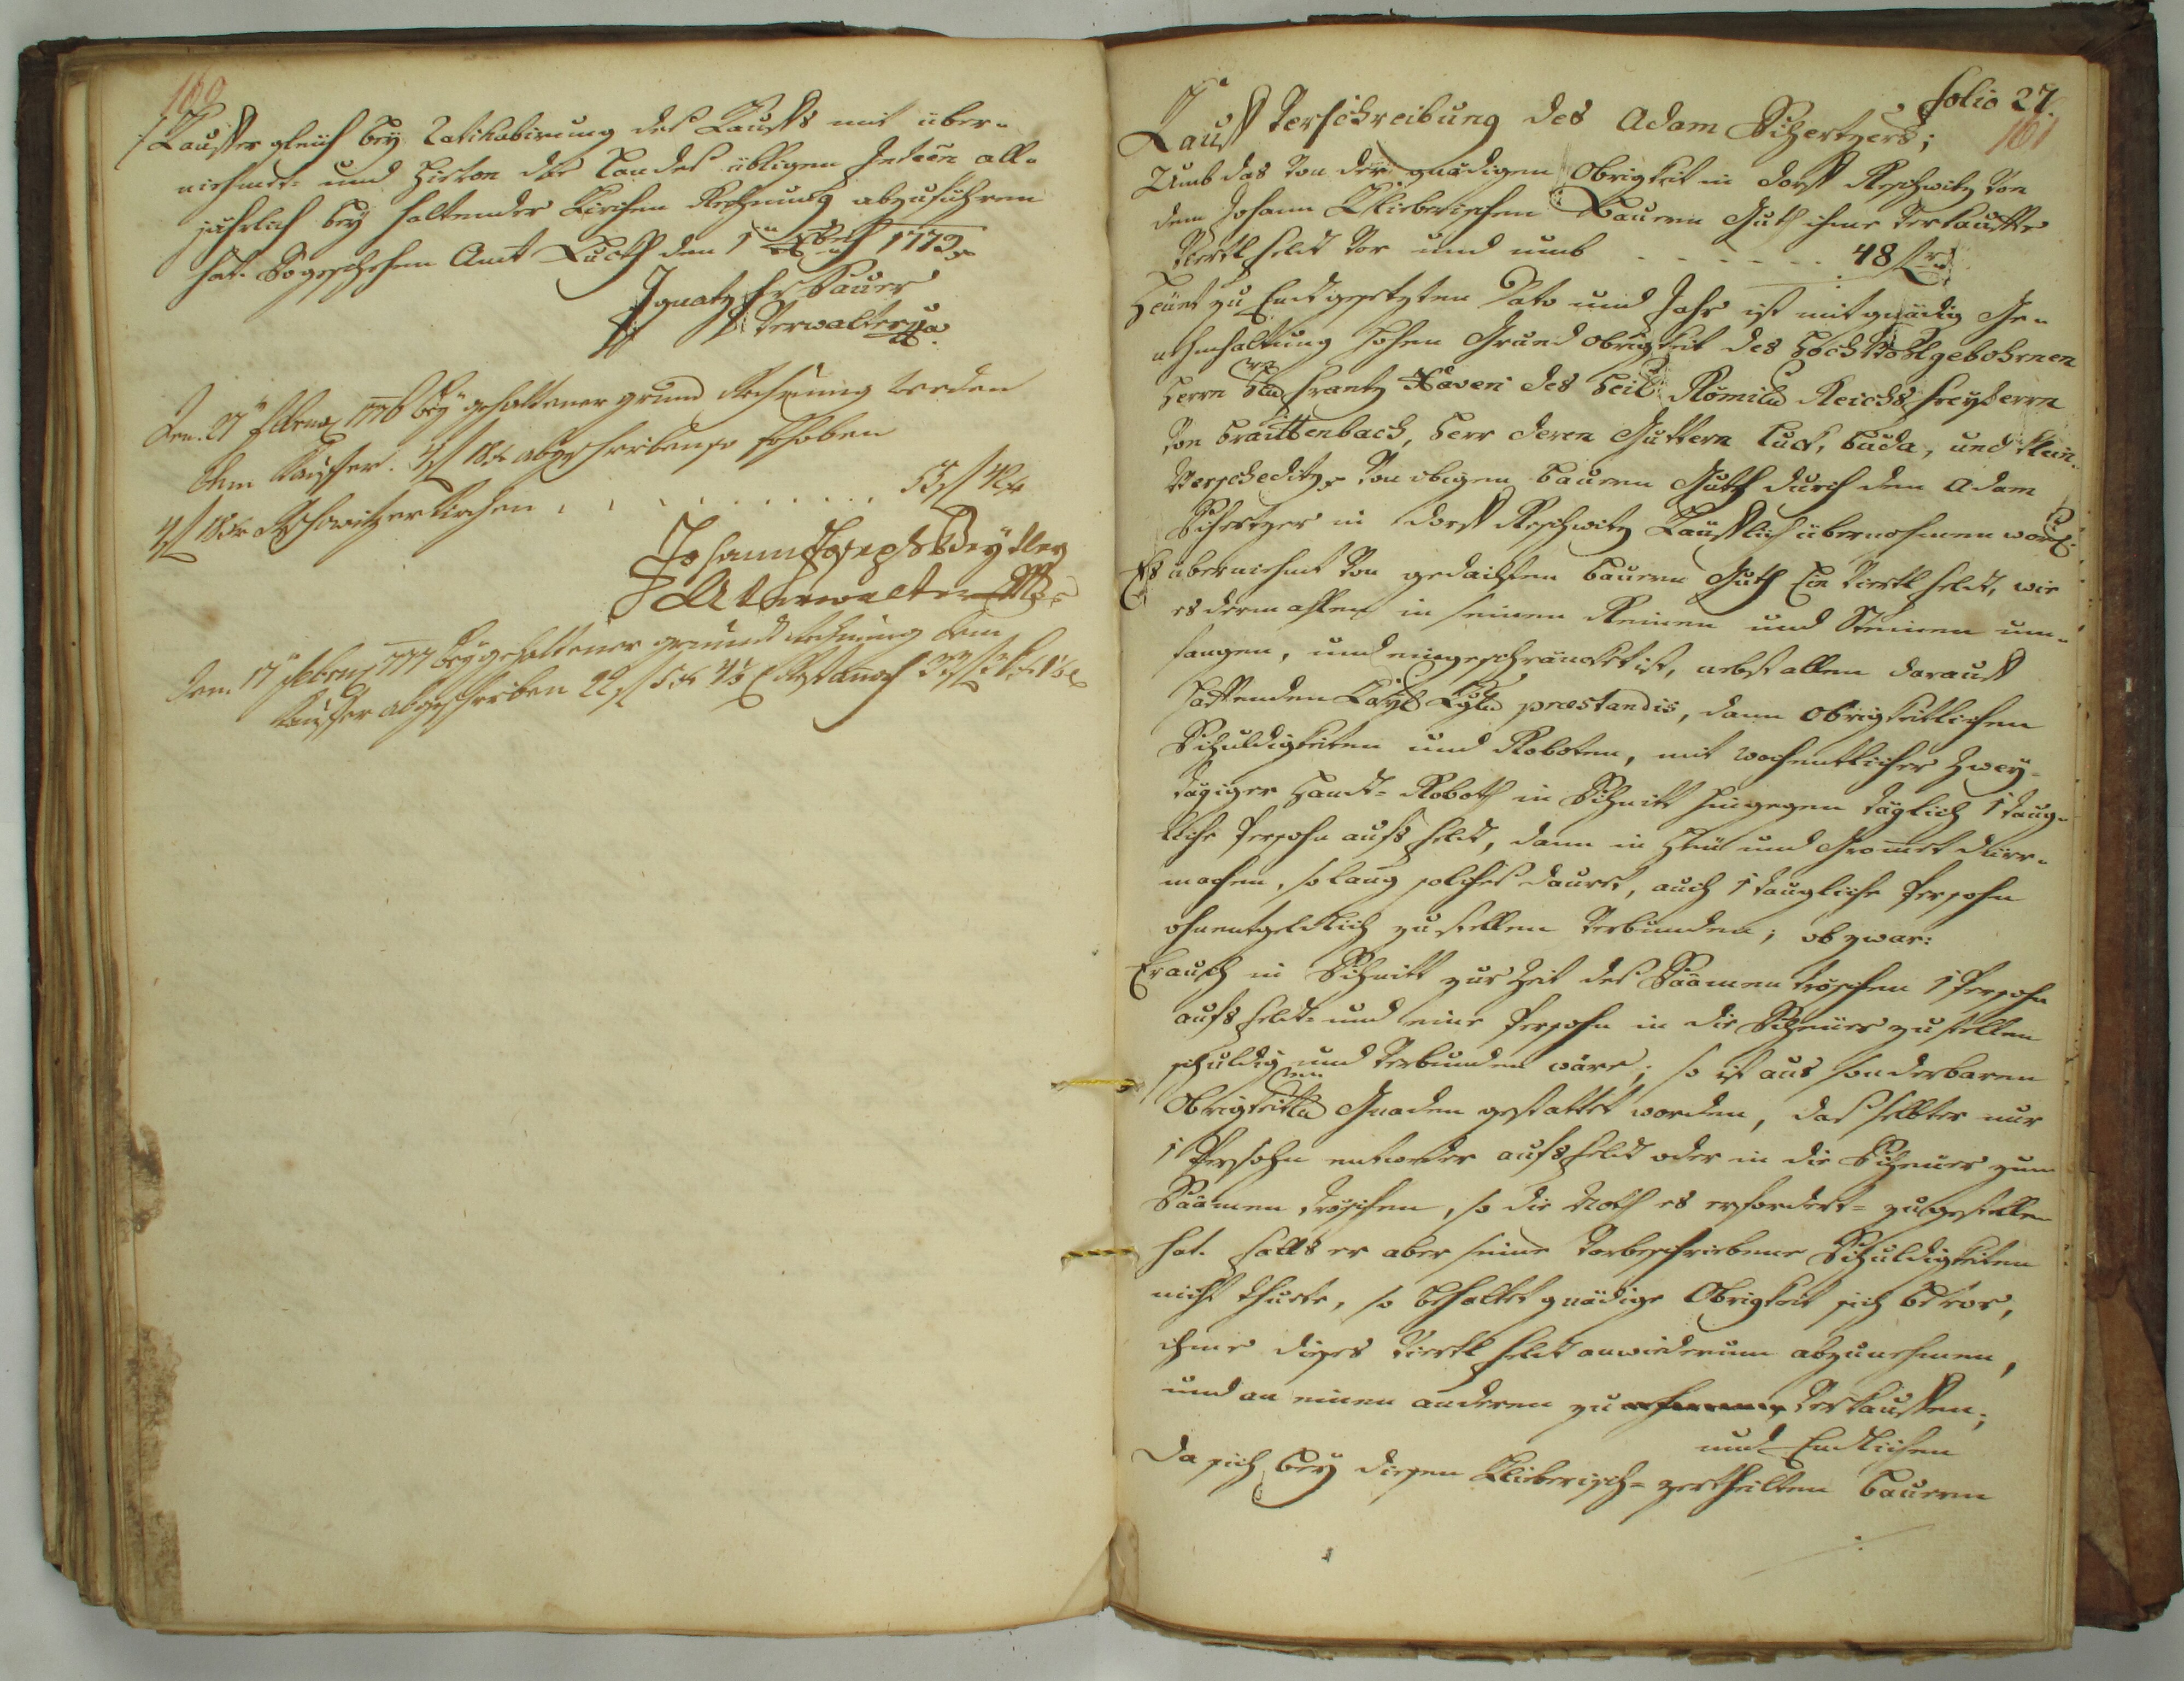 160
Kauffer gleich bey Ratihabirung des Kauffs mit über-
nehmet- und hievon das landes übligen Intëen all-
jährlich bey haltender Kirchen Rechnung abzuführen
hat. So geschehen Amt Luck den 1n Xbris 1773
Ignatz Erbauer
Verwalter
Den 27t Febru 1776 bey gehaltener grund Rechnung werden
dem Kauffer 4 f 18 x abgeschriebene
4 f 18 x Reschwitzer Kirchen
Johann Joseph Beydler
Verwalter
Den 17t Febru 777 bey gehaltener grund Rechnung dem
Kauffer abgeschrieben
Folio 27.
161
Kauff Verschreibung des Adam Schertzers;
Umb das von der gnädigen Obrigkeit in dorff Reschwitz von
dem Johann Klieberischen Bauern Guth ihme verkauffte
Viertl feldt vor und umb . . . . . . 48 f
Heünt zu Endtgesetzten Dato und Jahr ist mit gnädig Ge-
nehmhaltung hohen Grund obrigkeit des Hoch Wohlgebohrnen
Herrn Herrn Frantz Xaveri des Heil: Römischen Reichs Freyherrn
von Braittenbach, Herr deren Güttern Luck, Buda, und Klein
Werscheditz, von obigen Bauern Guth durch den Adam
Schertzer in dorff Reschwitz Käufflich übernohmen word:
Es übernihmt von gedachten Bauern Guth Ein Viertl feldt, wie
es dermahlen in seinen Reinen und Steinen um-
fangen, und eingeschräncket ist, nebst allen darauff
hafftenden Kayl: Kgln præstandis, dann obrigkeitlichen
Schuldigkeiten und Roboten, mit wochentlicher Zwey-
tägiger Handt- Roboth in Schnitt hingegen täglich 1 taug-
liche Persohn aufs feldt, dann in Heü und Grommet dürr-
machen, so lang solches dauret, auch 1 taugliche Persohn
ohnentgeldtlich zu stellen verbunden; ob zwar:
Er auch in Schnitt zur Zeit des Säämen dröschen 1 Persohn
aufs feldt- und eine Persohn in die Scheüer zu stellen
schuldig und verbunden wäre; so ist aus sonderbaren
Obrigkeitln Gnaden gestattet worden, das selbter nur
1 Persohn entweder aufs feldt oder in die Scheuer zum
Säämen dröschen, so die Noth es erfordert- zu gestellen
hat. Falls er aber seine vorbeschriebene Schuldigkeiten
nicht thuete, so behaltet gnädige Obrigkeit sich bevor,
ihme dieses Viertl feldt anwiederum abzunehmen,
und an einen anderen zu verkauffen;
und Endlichen
Da sich bey diesen Klieberisch- zertheilten Bauern